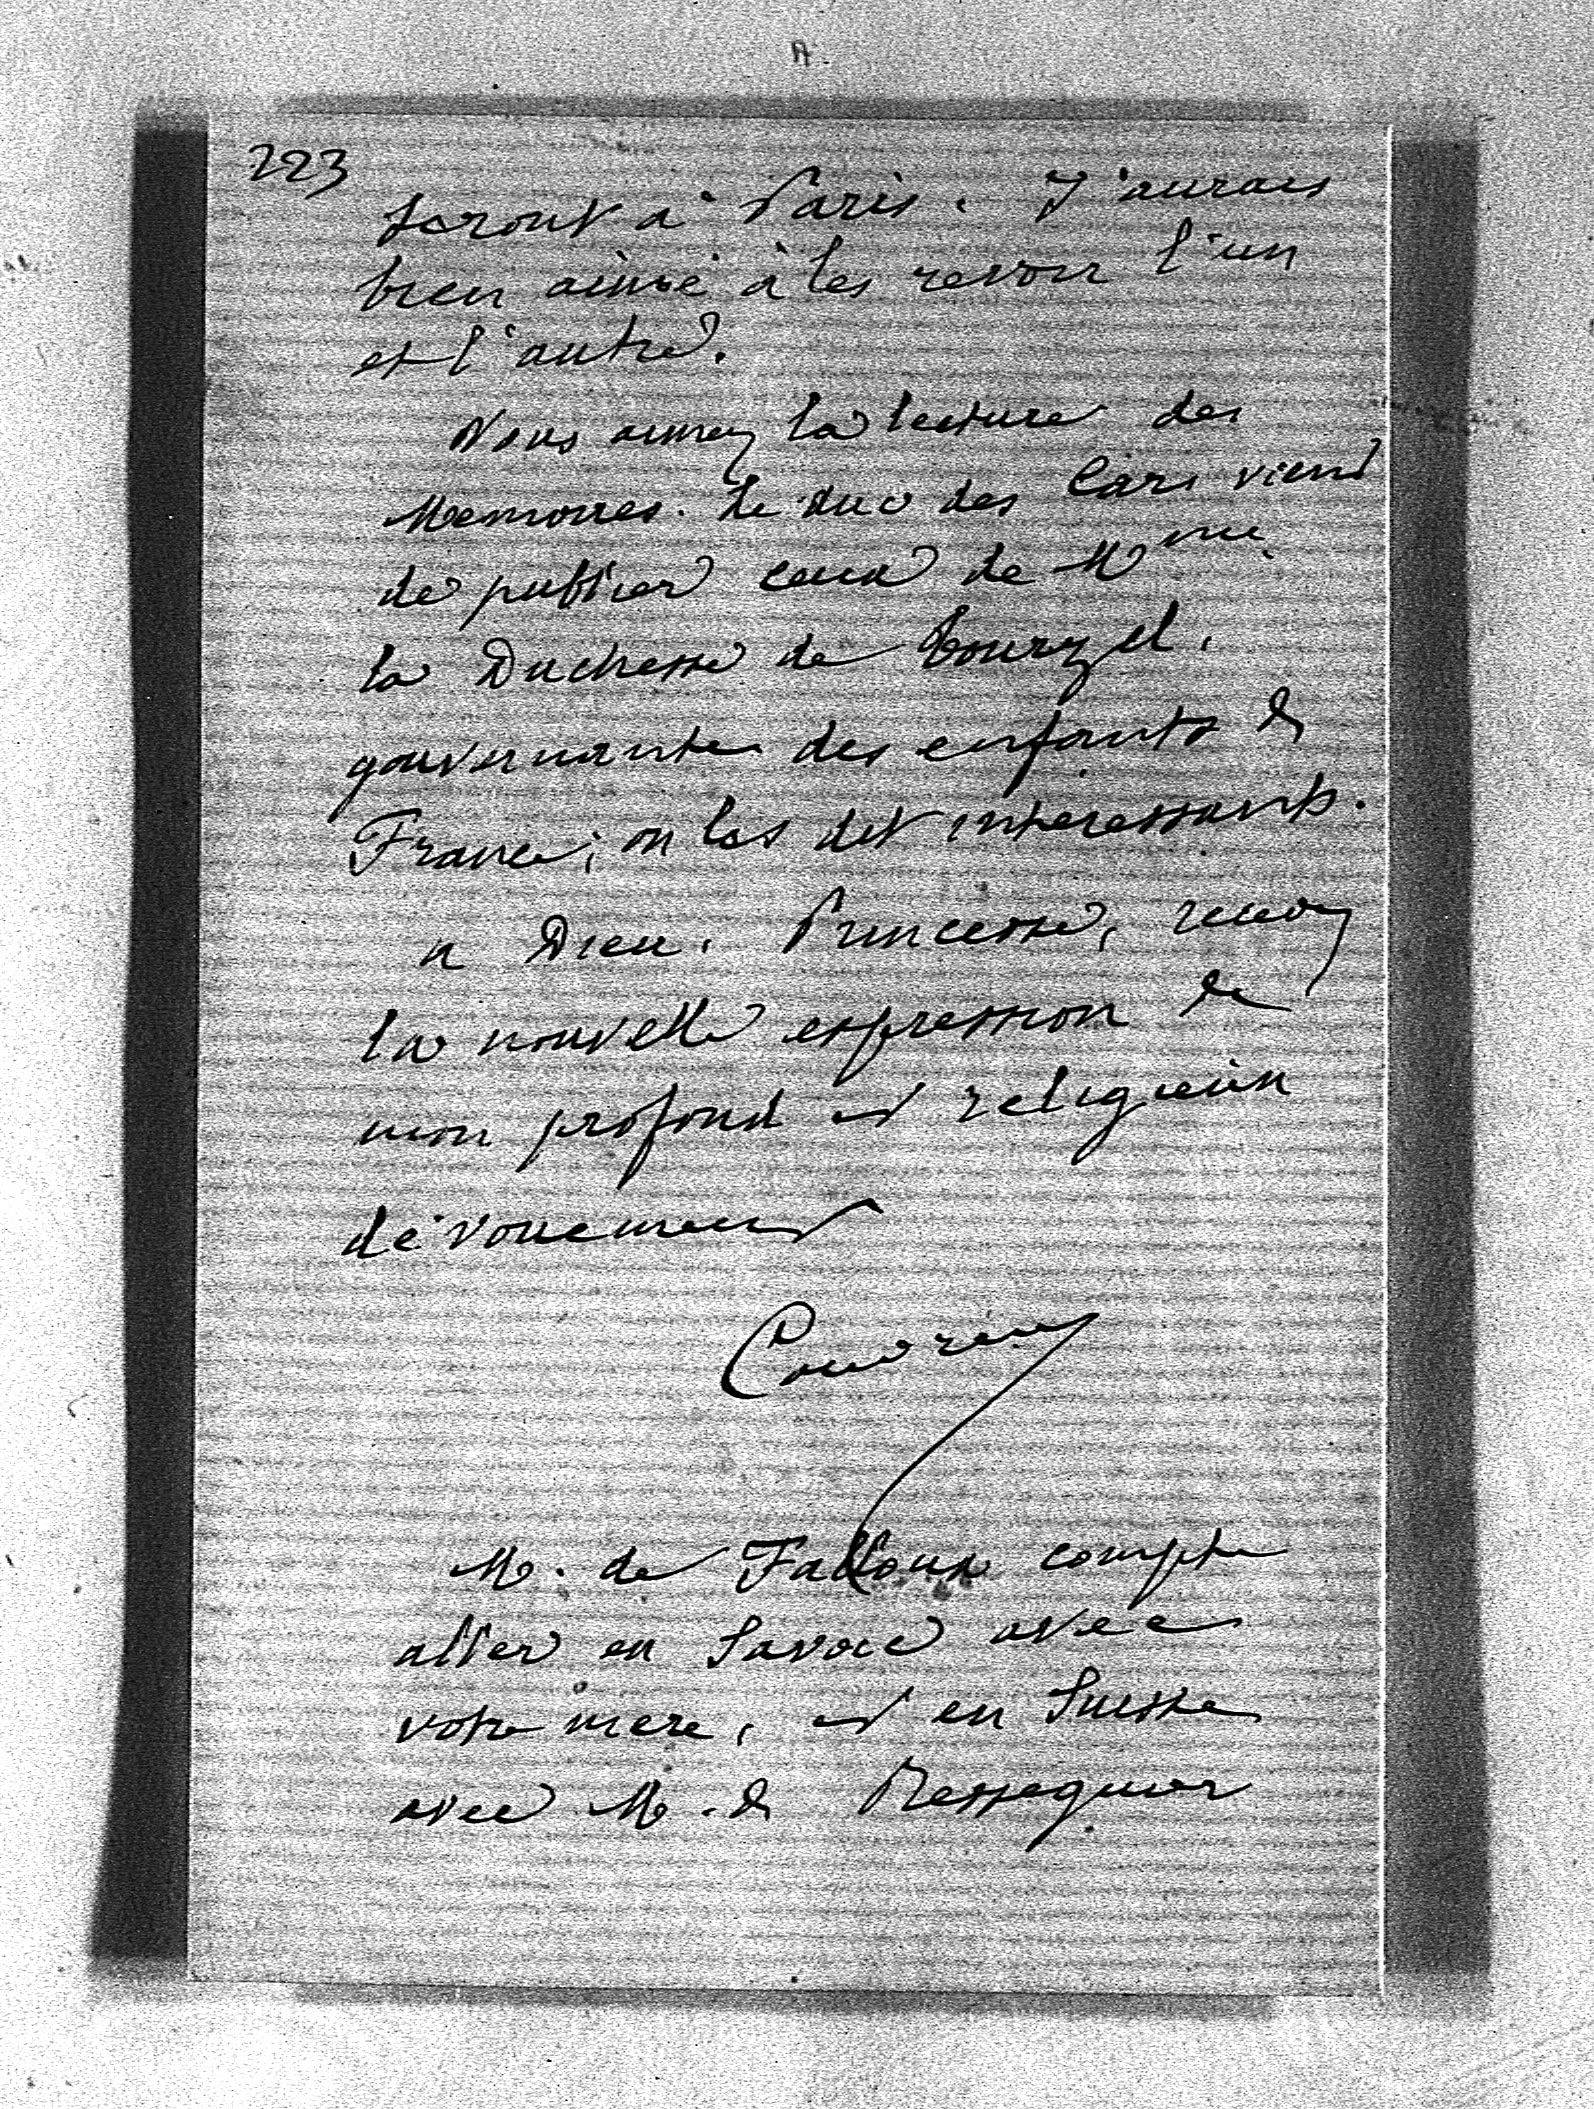 223
seront à Paris. J'aurais
bien aimé à les revoir l'un
et l'autre.
Vous aimez la lecture des
Memoires. Le duc des Cars vient
de publier ceux de Mme
la Duchesse de Tourzel,
gouvernante des enfants de
France; on les dit interessants.
a Dieu, Princesse, recevez
la nouvelle expression de
mon profond et religieux
dévouement
M. de Falloux compte
aller en Savoie avec
votre mere, et en Suisse
avec M. de Resseguier